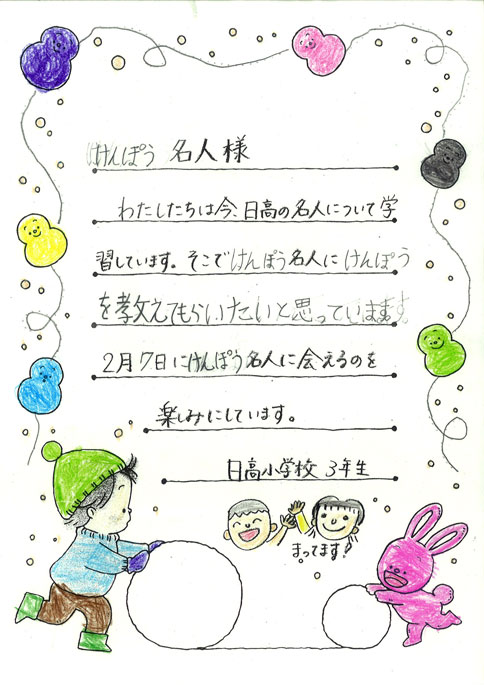 けんぽう 名人様
わたしたちは今、日高の名人について学
習しています。そこでけんぽう名人にけんぽう
を教えてもらいたいと思っています
2月7日にけんぽう名人に会えるのを
楽しみにしています。
日高小学校 3年生
まってます!